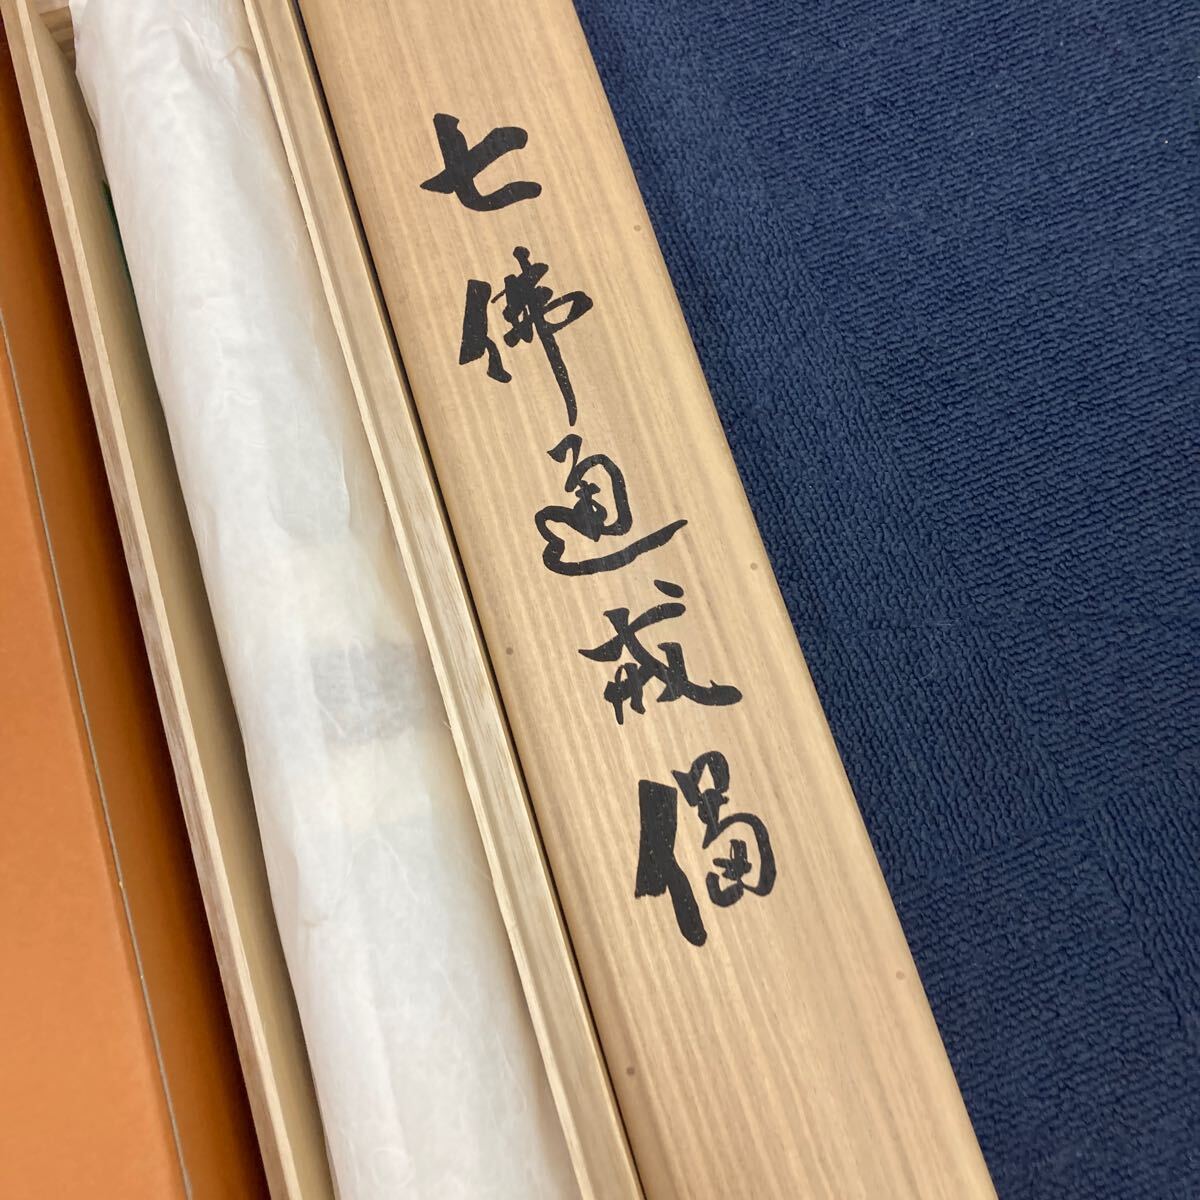 七佛通戒偈